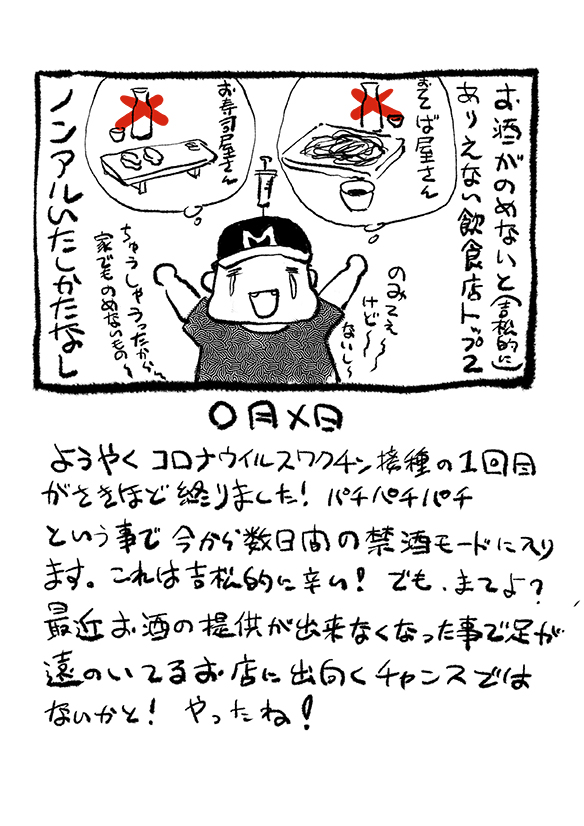 お酒がのめないと(吉松的に)
ありえない飲食店トップ2
おそば屋さん
お寿司屋さん
ノンアルいたしかたなし
M
のみてぇ〜
けど〜〜
ないし〜
ちゅうしゃうったから〜
家でものめないもの〜
〇月×日
ようやくコロナウイルスワクチン接種の1回目
がさきほど終りました! パチパチパチ
という事で今から数日間の禁酒モードに入り
ます。これは吉松的に辛い! でも、まてよ?
最近お酒の提供が出来なくなった事で足が
遠のいてるお店に出向くチャンスでは
ないかと! やったね!